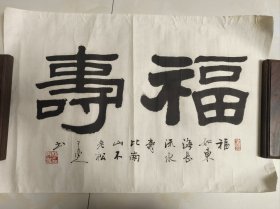 福壽
福
如東
海長
流水
壽
比南
山不
老松